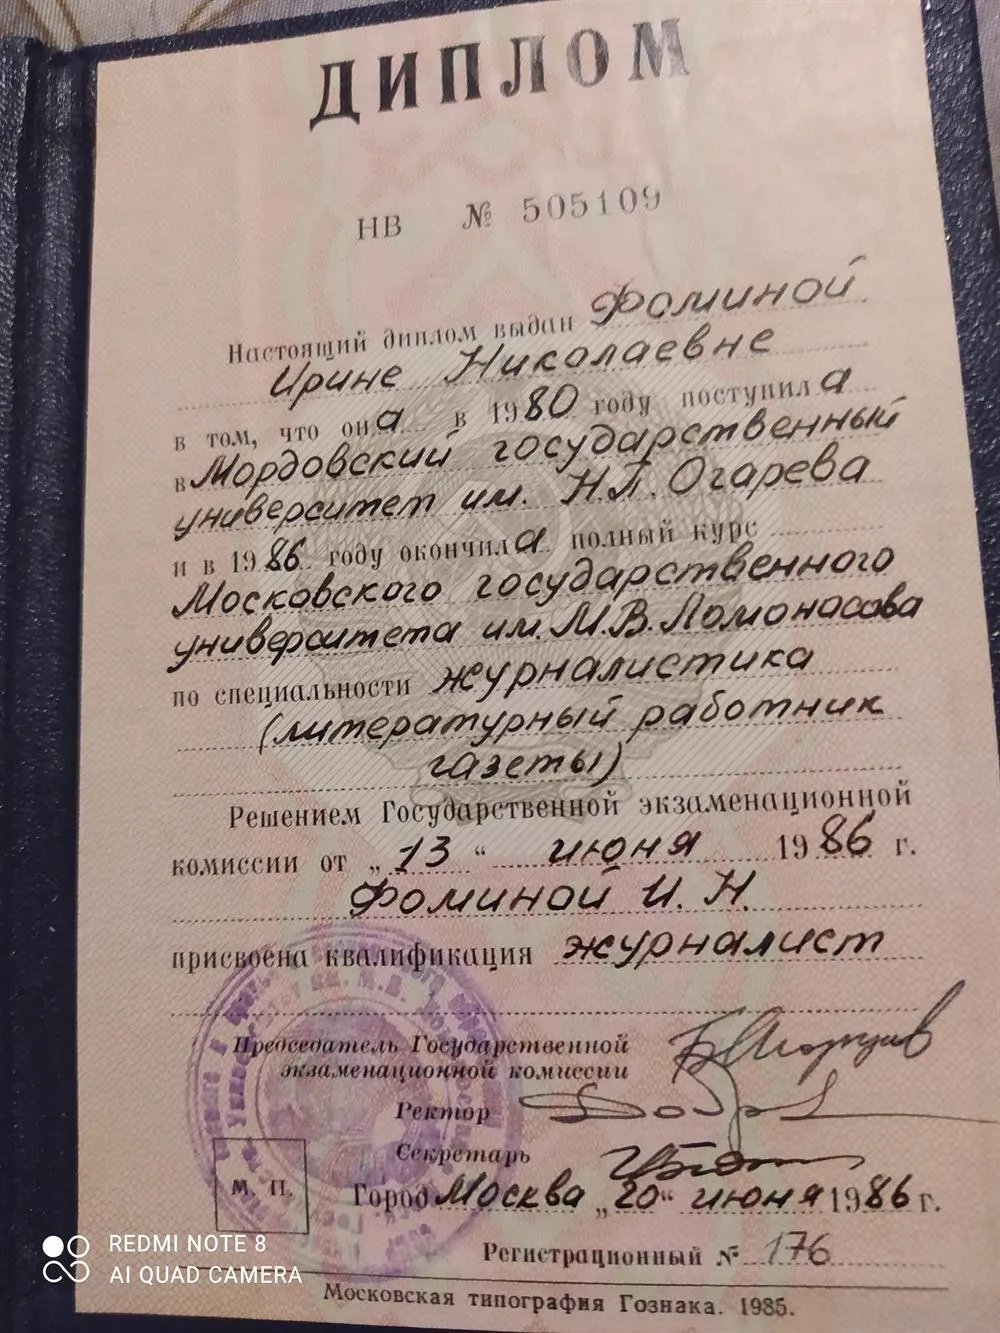 ДИПЛОМ
НВ № 505109
Настоящий диплом выдан Фоминой
Ирине Николаевне
в том, что она в 1980 году поступила
в Мордовский государственный
университет им. Н.П. Огарева
и в 1986 году окончила полный курс
Московского государственного
университета им. М.В. Ломоносова
по специальности журналистика
(литературный работник
газеты)
Решением Государственной экзаменационной
комиссии от „13“ июня 1986 г.
Фоминой И. Н.
присвоена квалификация журналист
Председатель Государственной
экзаменационной комиссии
Ректор
Секретарь
М. П.
Город Москва „20“ июня 1986 г.
Регистрационный № 176
Московская типография Гознака. 1985.
REDMI NOTE 8
AI QUAD CAMERA